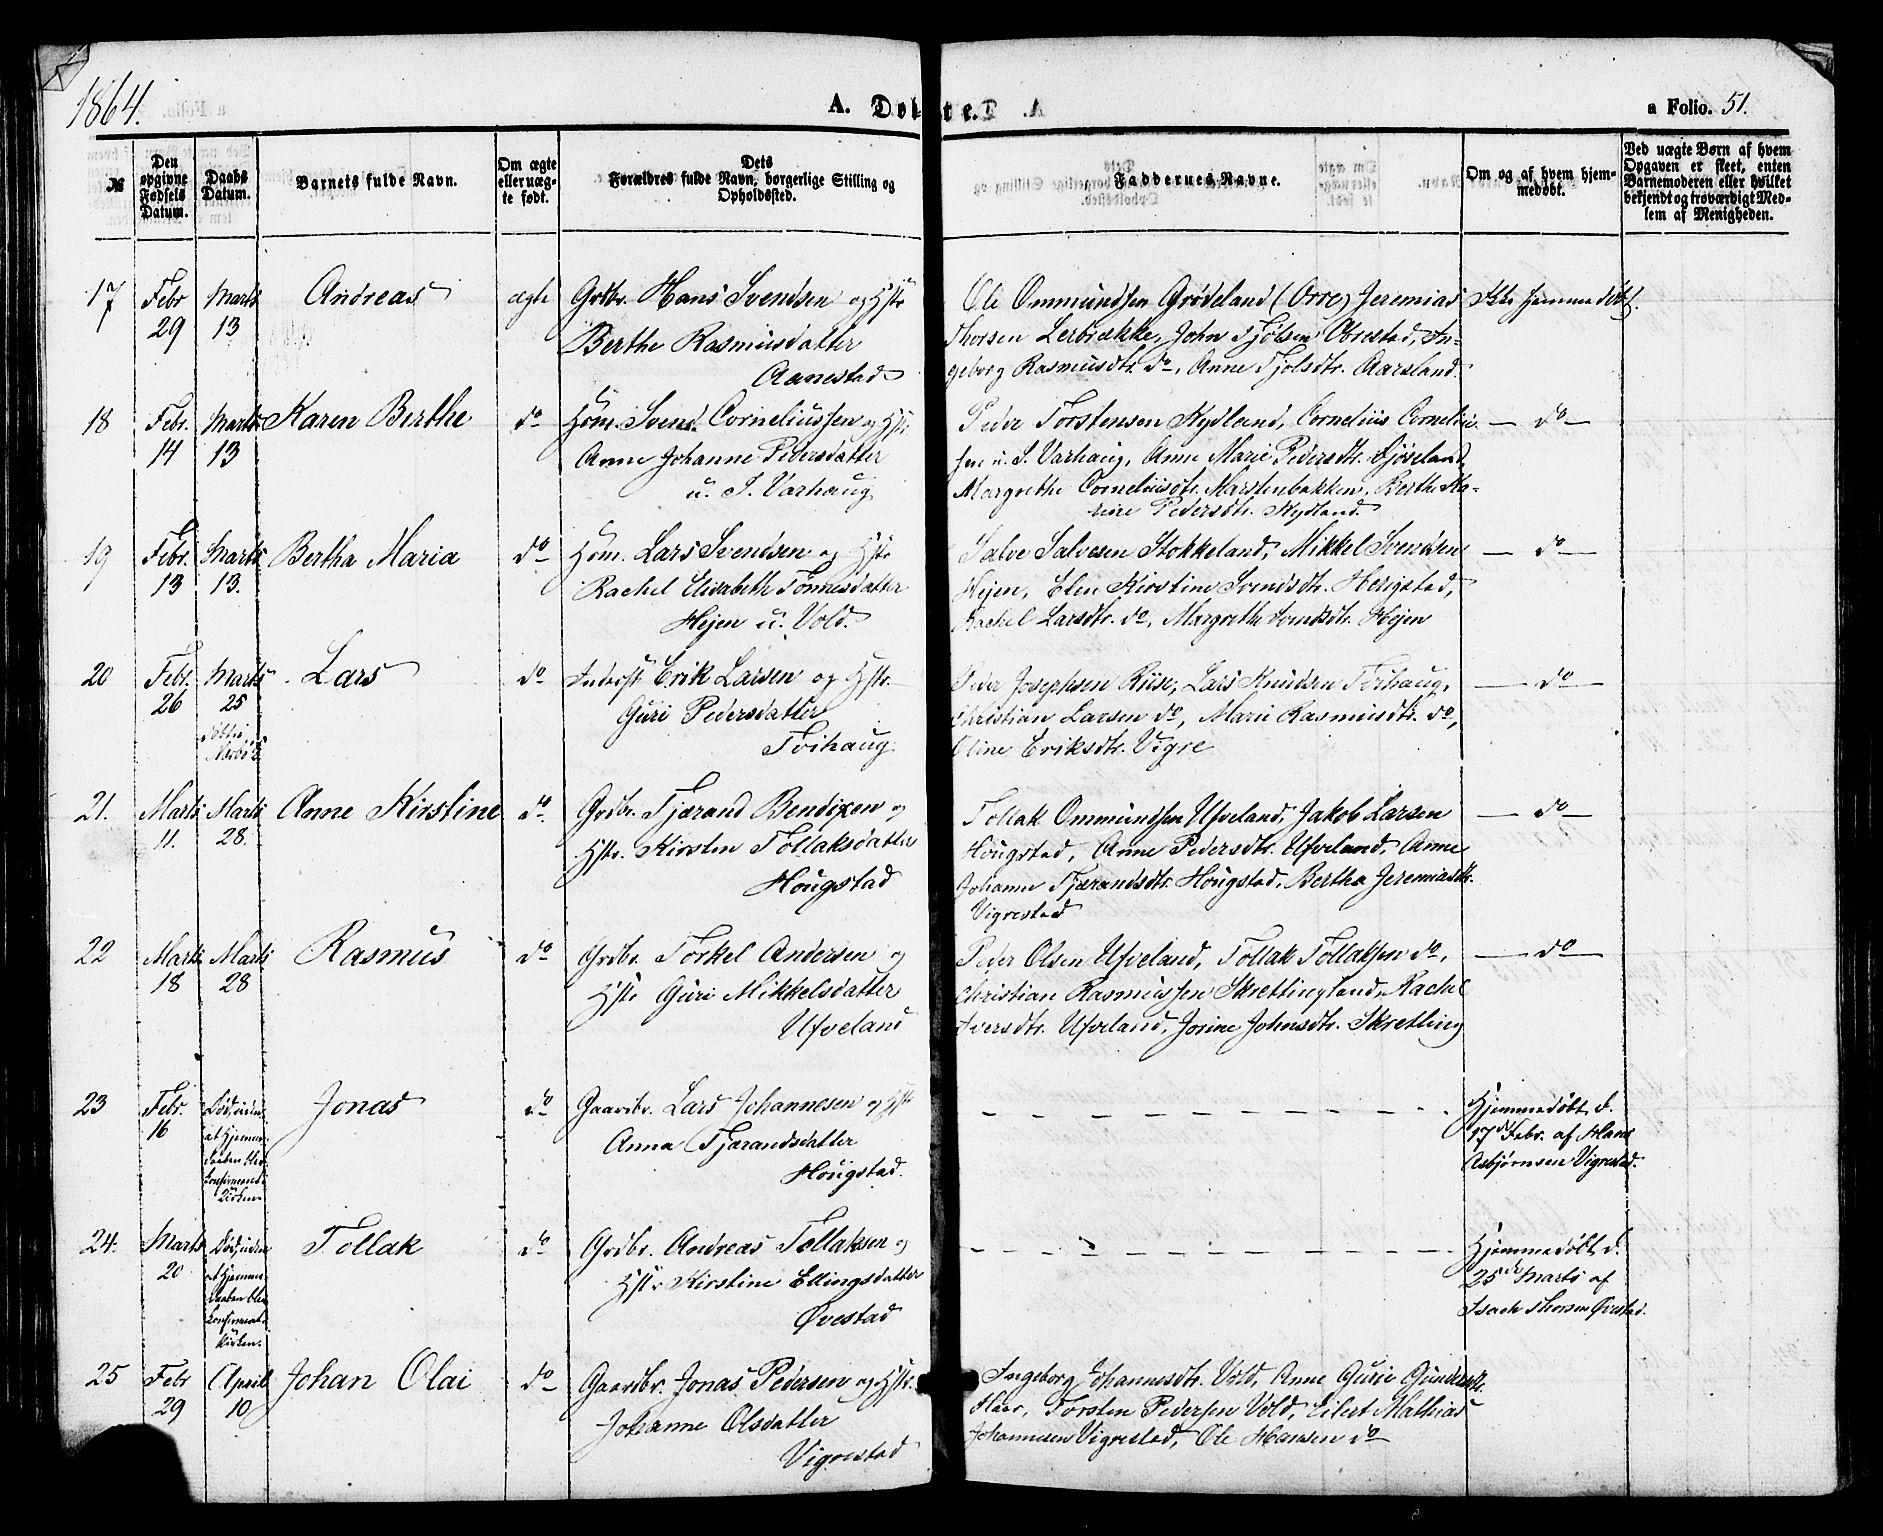 1864.
A. Døbte.
a Folio. 51.
№
Den opgivne Fødsels Datum.
Daabs Datum.
Barnets fulde Navn.
Om ægte eller uægte født.
Dets Forældres fulde Navn, borgerlige Stilling og Opholdssted.
Faddernes Navne.
Om og af hvem hjemmedøbt.
Ved uægte Børn af hvem Opgaven er skeet, enten Barnemoderen eller hvilket bekjendt og troværdigt Medlem af Menigheden.
17 Febr 29 Marts 13 Andreas ægte
Grdbr. Hans Svendsen og Hstr
Berthe Rasmusdatter
Aanestad
Ole Ommundsen Grødeland (Orre) Jeremias
Thorsen Lerbrække, John Tjølsen Obrestad, In-
geborg Rasmusdtr. do, Anne Tjølsdtr. Aarsland.
Ikke hjemmedøbt.
18 Febr. 14 Marts 13 Karen Berthe do
Hsm. Svend Corneliussen og Hstr.
Anne Johanne Pedersdatter
u. S. Varhaug
Peder Torstensen Nydland, Cornelius Corneliu-
sen u. S. Varhaug, Anne Marie Pedersdtr.
Margrethe Corneliusdtr. Marstenbakken, Berthe Ka-
rine Pedersdtr. Nydland.
do
19 Febr. 13 Marts 13. Bertha Maria do
Hsm. Lars Svendsen og Hstr
Rachel Elisabeth Tønnesdatter
Hejen u. Vold.
Salve Salvesen Stokkeland, Mikkel Svendsen
Hejen, Elen Kirstine Svendsdtr. Herigstad,
Rachel Larsdtr. do, Margrethe Svendsdtr. Hejen
do
20 Febr. 26 Marts 25 døbt i Nærbø K. Lars do
Inderst Erik Larsen og Hstr.
Guri Pedersdatter
Torhaug
Peder Josephsen Riise, Lars Knudsen Torhaug,
Christian Larsen do, Marie Rasmusdtr. do,
Oline Eriksdtr. Vigre
do
21. Marts 11. Marts 28. Anne Kirstine do
Grdbr. Tjærand Bendixen og
Hstr. Kirsten Tollaksdatter
Hougstad
Tollak Ommundsen Ufveland, Jakob Larsen
Hougstad, Anne Pedersdtr. Ufveland, Anne
Johanne Tjærandsdtr. Hougstad, Bertha Jeremiasdtr.
Vigrestad
do
22 Marts 18 Marts 28 Rasmus do
Grdbr. Torkel Andersen og
Hstr Guri Mikkelsdatter
Ufveland
Peder Olsen Ufveland, Tollak Tollaksen do,
Christian Rasmussen Skrettingland, Rachel
Iversdtr. Ufveland, Josine Johnsdtr. Skretting
do
23 Febr. 16 Død, uden at Hjemmedaaben blev confirmeret i Kirken. Jonas do
Gaardbr. Lars Johannesen og Hstr
Anna Tjærandsdatter
Hougstad.
Hjemmedøbt d.
17de Febr. af Hans
Asbjørnsen Vigrestad.
24. Marts 20 Død, uden at Hjemmedaaben blev confirmeret i Kirken. Tollak do
Grdbr. Andreas Tollaksen og
Hstr Kirstine Ellingsdatter
Øvestad
Hjemmedøbt d.
25de Marts af
Isach Thorsen Øvestad.
25 Febr 29 April 10 Johan Olai do
Gaardbr. Jonas Pedersen og Hstr.
Johanne Olsdatter
Vigrestad
Ingeborg Johannesdtr. Vold, Anne Gurie Gundersdtr.
Haar, Torsten Pedersen Vold, Eilert Mathias
Johannesen Vigrestad, Ole Hansen do